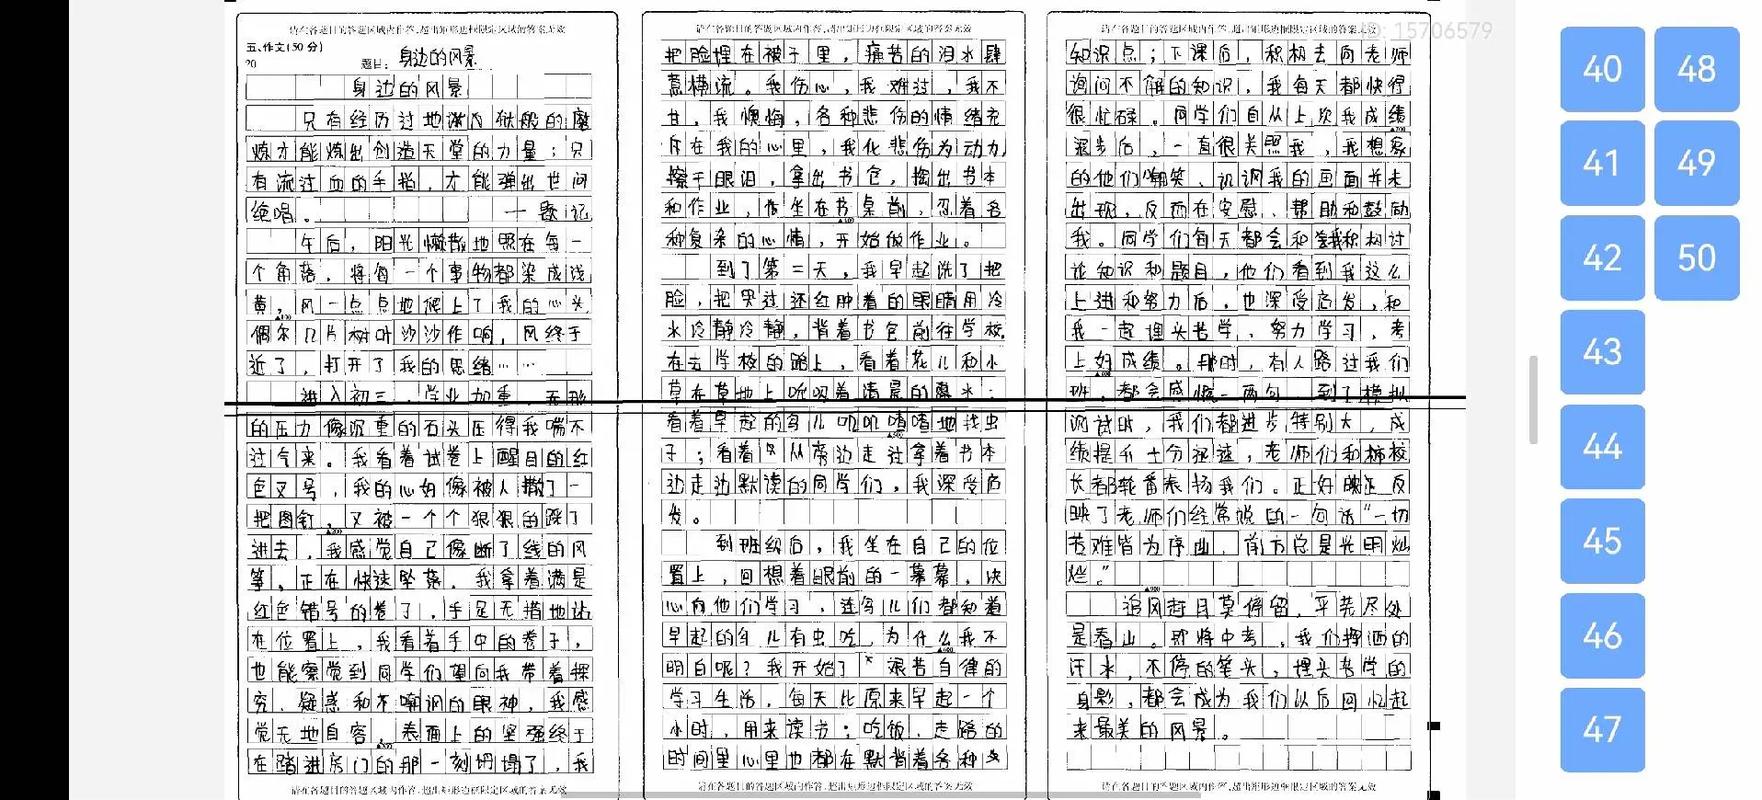 请在各题目的答题区域内作答,超出矩形边框限定区域的答案无效
五、作文(50分)
20
题目：身边的风景
身边的风景
只有经历过地狱般的磨
炼才能炼出创造天堂的力量；只
有流过血的手指，才能弹出世间
绝唱。 一题记
午后，阳光懒散地照在每一
个角落，将每一个事物都染成浅
黄，风一点点地爬上了我的心头
偶尔几片树叶沙沙作响，风终于
近了，打开了我的思绪……
进入初三，学业加重，无形
的压力像沉重的石头压得我喘不
过气来。我看着试卷上醒目的红
色叉号，我的心好像被人撒了一
把图钉，又被一个个狠狠的踩了
进去，我感觉自己像断了线的风
筝，正在快速坠落，我拿着满是
红色错号的卷了，手足无措地站
在位置上，我看着手中的卷子，
也能察觉到同学们望向我带着探
究、疑惑和不嘲讽的眼神，我感
觉无地自容，表面上的坚强终于
在踏进房门的那一刻坍塌了，我
请在各题目的答题区域内作答,超出矩形边框限定区域的答案无效
请在各题目的答题区域内作答,超出矩形边框限定区域的答案无效
把脸埋在被子里，痛苦的泪水肆
意横流。我伤心，我难过，我不
甘，我懊悔，各种悲伤的情绪充
斥在我的心里，我化悲伤为动力
擦干眼泪，拿出书包，掏出书本
和作业，坐在书桌前，忍着各
种复杂的心情，开始做作业。
到了第二天，我早起洗了把
脸，把哭过还红肿着的眼睛用冷
水冷静冷静，背着书包前往学校
在去学校的路上，看着花儿和小
草在草地上吮吸着清晨的露水；
看着早起的鸟儿叽叽喳喳地找虫
子；看着从旁边走过拿着书本
边走边默读的同学们，我深受启
发。
到班级后，我坐在自己的位
置上，回想着眼前的一幕幕，决
心向他们学习，连鸟儿们都知道
早起的鸟儿有虫吃，为什么我不
明白呢？我开始了艰苦自律的
学习生活，每天比原来早起一个
小时，用来读书；吃饭、走路的
时间里心里也都在默背着各种
请在各题目的答题区域内作答,超出矩形边框限定区域的答案无效
请在各题目的答题区域内作答,超出矩形边框限定区域的答案无效
ID: 15706579
知识点；下课后，积极去向老师
询问不解的知识，我每天都快得
很忙碌。同学们自从上次我成绩
退步后，一直很关照我，我想象
的他们嘲笑、讥讽我的画面并未
出现，反而在安慰、帮助和鼓励
我。同学们每天都会和我积极讨
论知识和题目，他们看到我这么
上进和努力后，也深受启发，和
我一起埋头苦学，努力学习，考
上好成绩。那时，有人路过我们
班，都会感慨一两句，到了模拟
调试时，我们都进步特别大，成
绩提升十分迅速，老师们和校
长都轮番表扬我们。正好反
映了老师们经常说的一句话“一切
苦难皆为序曲，前方总是光明灿
烂。”
追风赶月莫停留，平芜尽处
是春山。即将中考，我们挥洒的
汗水，不停的笔头，埋头苦学的
身影，都会成为我们以后回忆起
来最美的风景。
请在各题目的答题区域内作答,超出矩形边框限定区域的答案无效
40 48
41 49
42 50
43
44
45
46
47